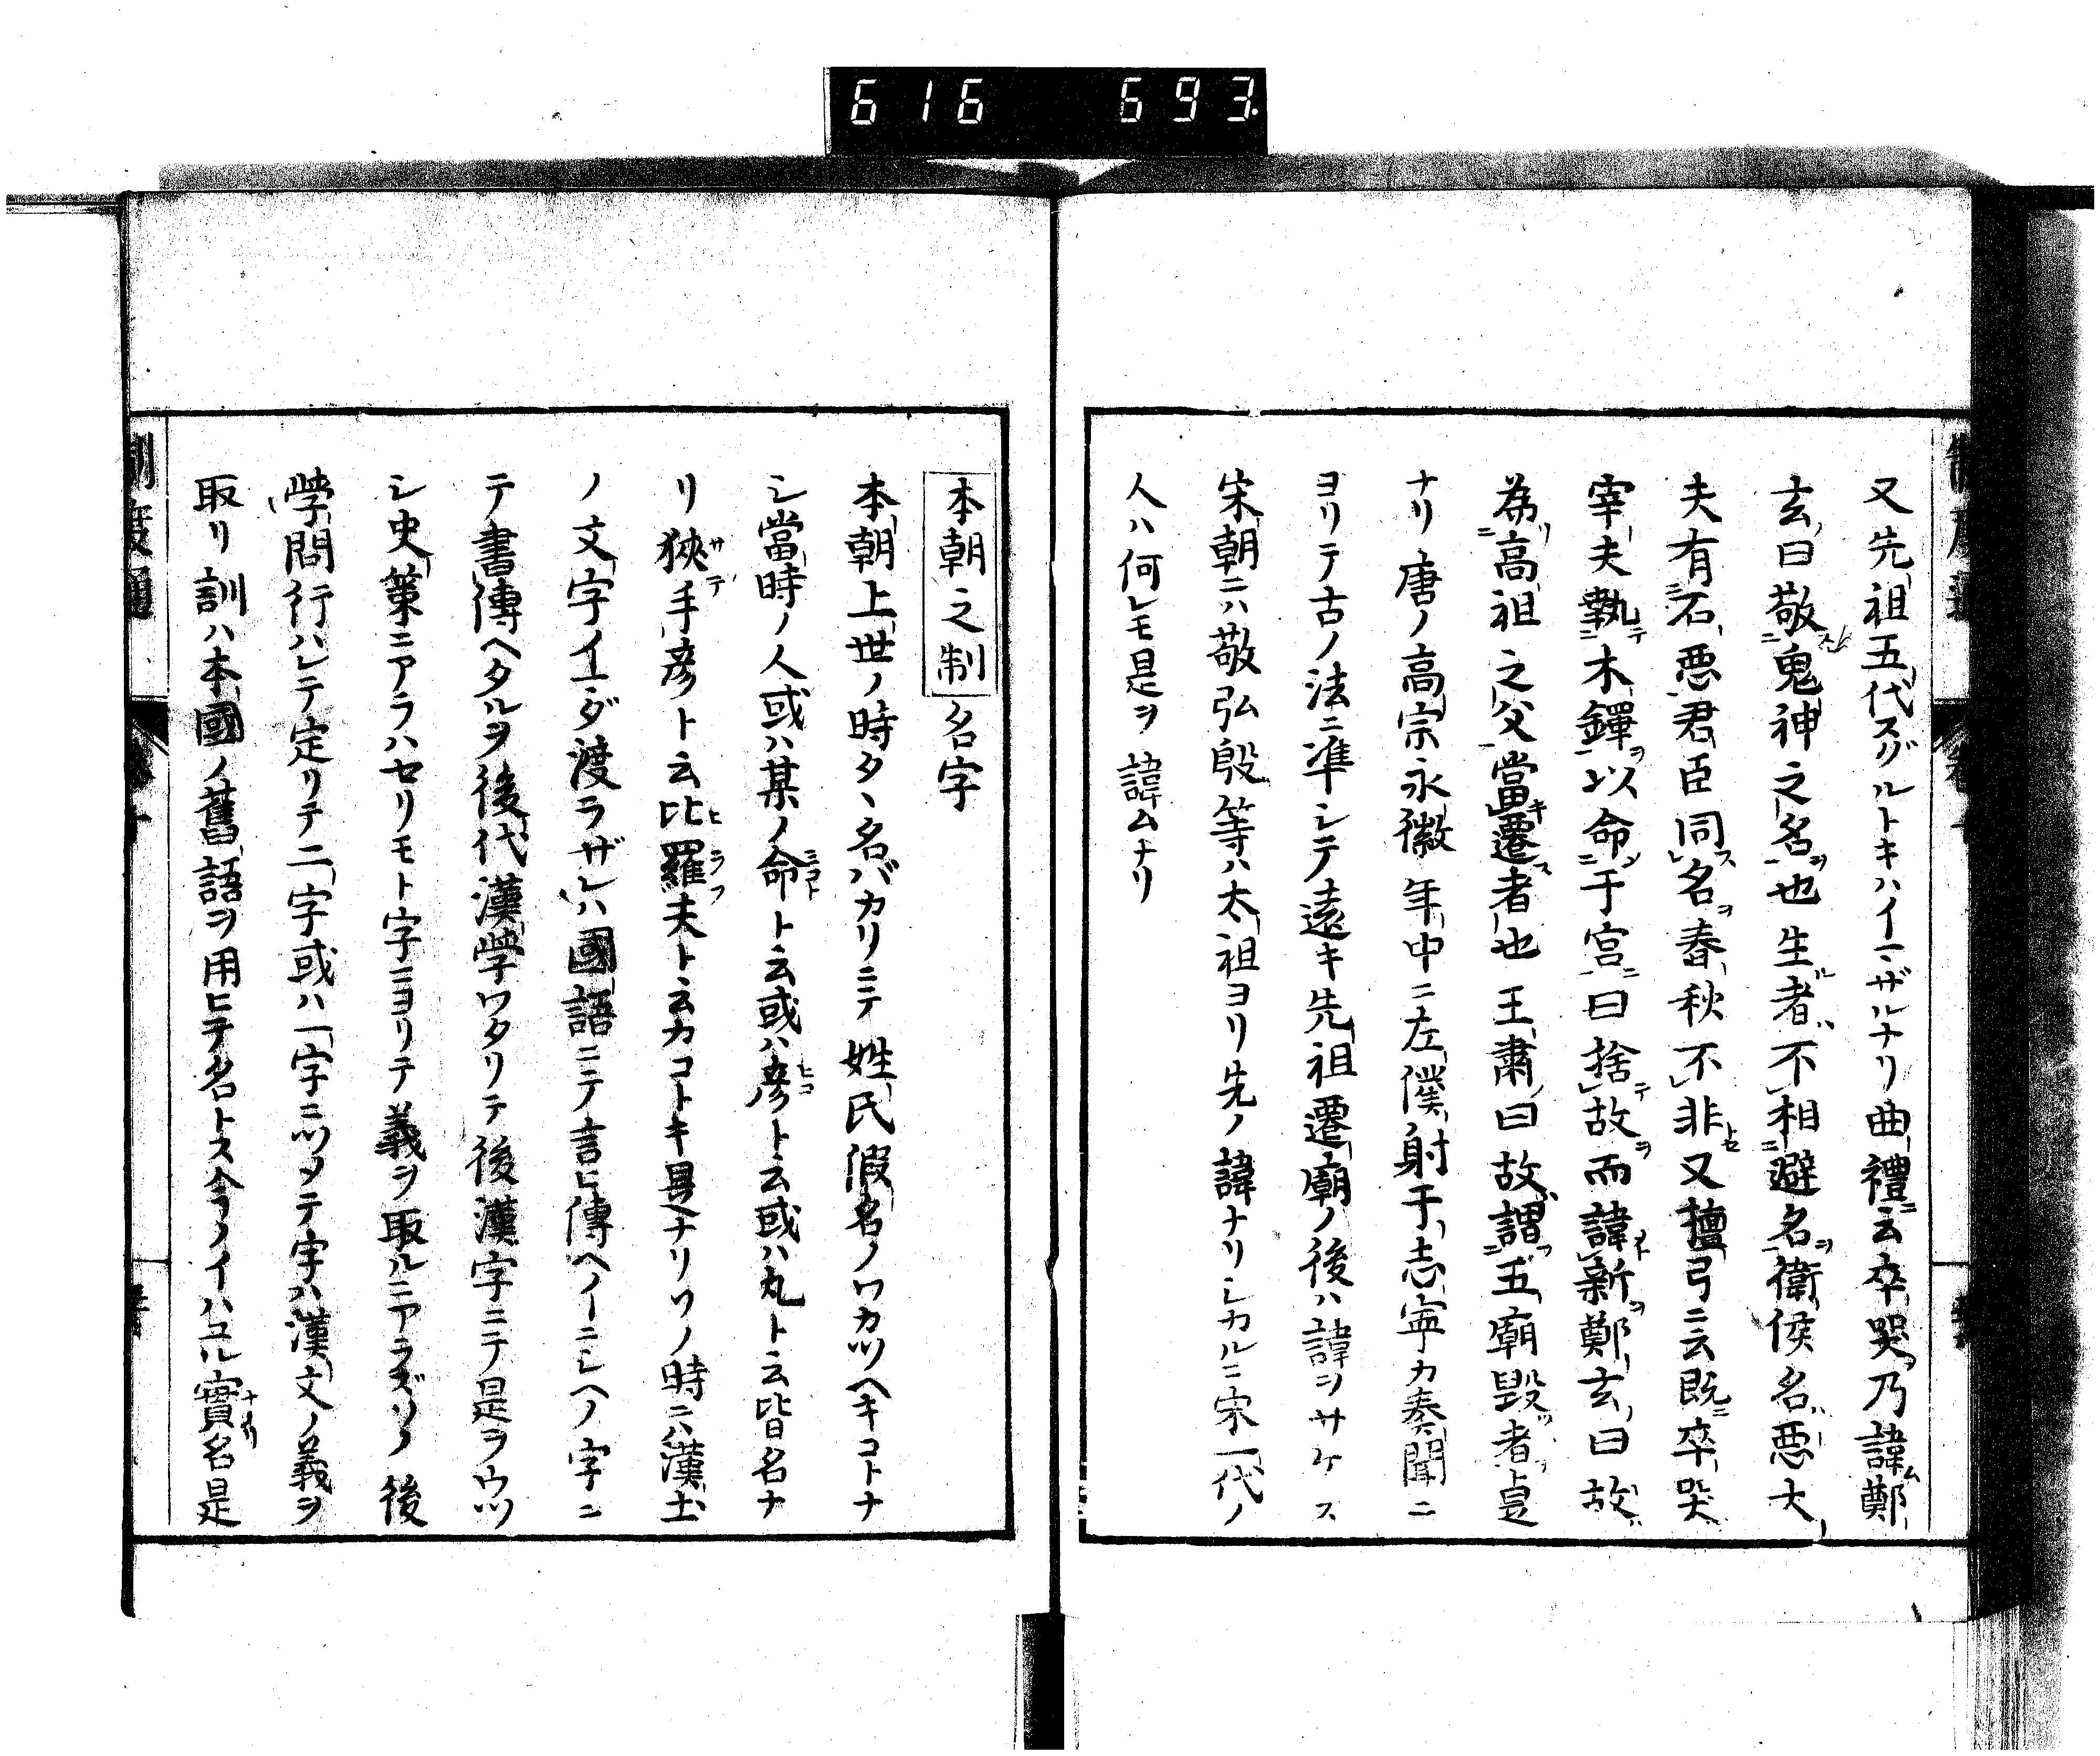 616 693
又先祖五代スグルトキハイマザルナリ曲禮云卒哭乃諱鄭
玄曰敬鬼神之名也生者不相避名衛侯名悪大
夫有石悪君臣同名春秋不非又檀弓ニ云既卒哭
宰夫執木鐸以命于宮曰捨故而諱新鄭玄曰故
為高祖之父當遷者也王肅曰故謂五廟毀者是
ナリ唐ノ高宗永徽年中ニ左僕射于志寧カ奏聞ニ
ヨリテ古ノ法ニ準シテ遠キ先祖遷廟ノ後ハ諱ヲサケス
宋朝ニハ敬弘殷等ハ太祖ヨリ先ノ諱ナリシカルニ宋一代ノ
人ハ何レモ是ヲ諱ムナリ
本朝之制 名字
本朝上世ノ時タヽ名バカリニテ姓氏假名ノワカツヘキコトナ
シ當時ノ人或ハ某ノ命ト云或ハ彦ト云或ハ丸ト云皆名ナ
リ狹手彦ト云比羅夫ト云カコトキ是ナリソノ時ニハ漢土
ノ文字イマダ渡ラザレハ國語ニテ言ヒ傳ヘノーニシヘノ字ニ
テ書傳ヘタルヲ後代漢學ワタリテ後漢字ニテ是ヲウツ
シ史策ニアラハセリモト字ニヨリテ義ヲ取ルニアラズソノ後
學問行ハレテ定リテ二字或ハ一字ニツメテ字ハ漢文ノ義ヲ
取リ訓ハ本國ノ舊語ヲ用ヒテ名トス今ノイハユル實名是